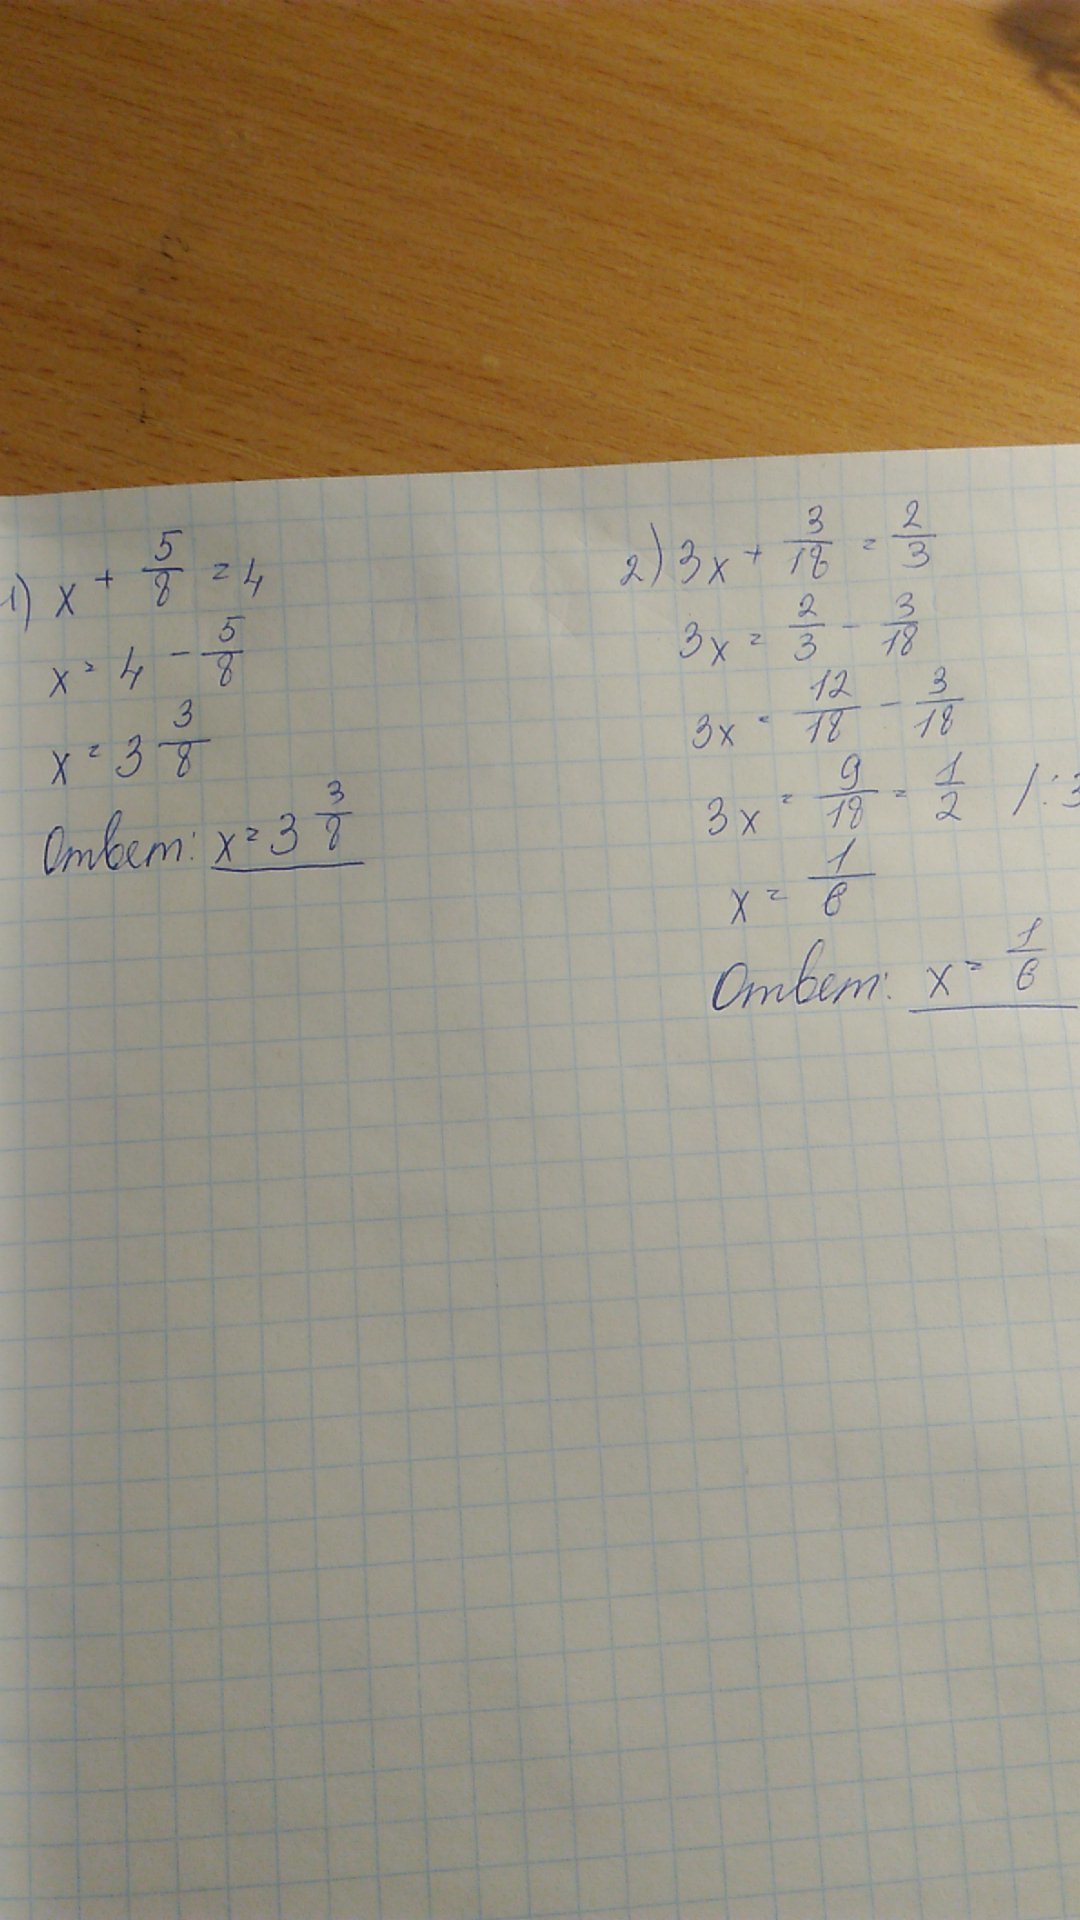 1) x + 5/8 = 4
x = 4 - 5/8
x = 3 3/8
Ответ: x = 3 3/8
2) 3x + 3/18 = 2/3
3x = 2/3 - 3/18
3x = 12/18 - 3/18
3x = 9/18 = 1/2 /:3
x = 1/6
Ответ: x = 1/6